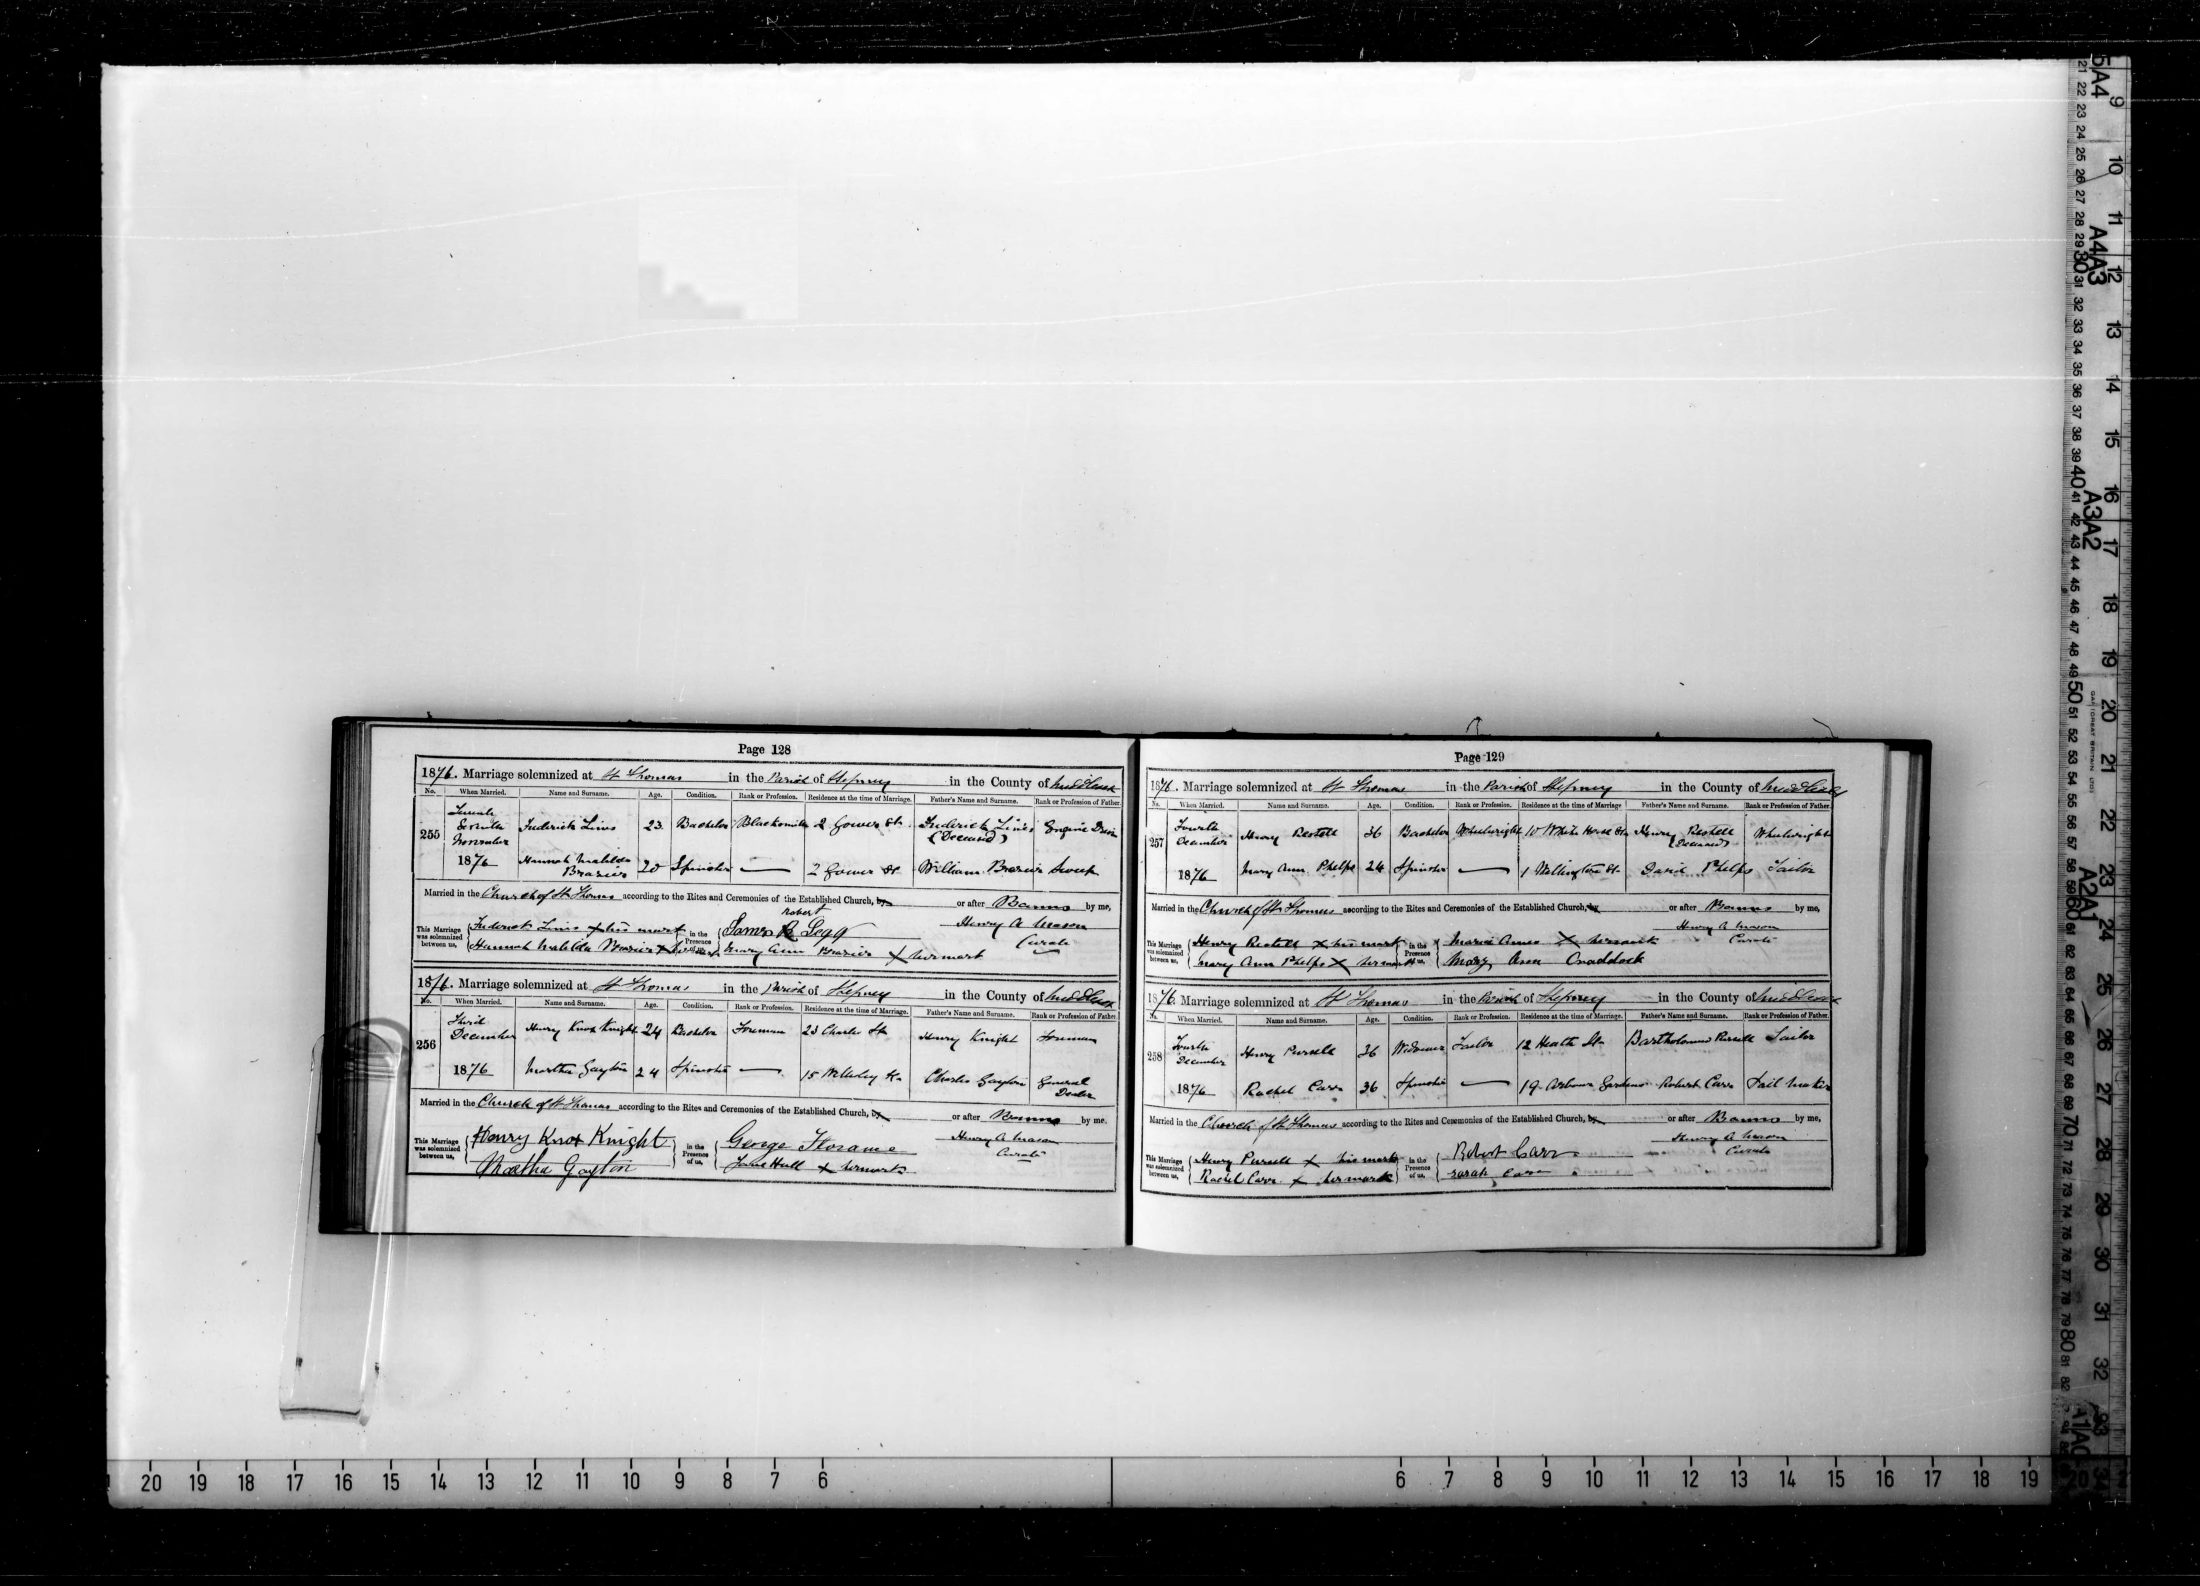 Page 128
1876. Marriage solemnized at St Thomas in the Parish of Stepney in the County of Middlesex
No. When Married. Name and Surname. Age. Condition. Rank or Profession. Residence at the time of Marriage. Father's Name and Surname. Rank or Profession of Father.
255 November Frederick Lines 23 Bachelor Blacksmith 2 Gower St. Frederick Lines (Deceased) Engine Driver
1876 Hannah Matilda Brazier 20 Spinster — 2 Gower St William Brazier Sweep
Married in the Church of St Thomas according to the Rites and Ceremonies of the Established Church, by or after Banns by me,
Henry A Mason
Curate
This Marriage was solemnized between us, Frederick Lines X his mark in the Presence of us, James Robert Legg
Hannah Matilda Brazier X her mark Mary Ann Brazier X her mark
1876. Marriage solemnized at St Thomas in the Parish of Stepney in the County of Middlesex
No. When Married. Name and Surname. Age. Condition. Rank or Profession. Residence at the time of Marriage. Father's Name and Surname. Rank or Profession of Father.
256 Third December Henry Knox Knight 24 Bachelor Foreman 23 Charles St Henry Knight Foreman
1876 Martha Gayton 24 Spinster — 15 Wellesley St. Charles Gayton General Dealer
Married in the Church of St Thomas according to the Rites and Ceremonies of the Established Church, by or after Banns by me,
Henry A Mason
Curate
This Marriage was solemnized between us, Henry Knox Knight in the Presence of us, George
Martha Gayton Jane Hull X her mark
Page 129
1876. Marriage solemnized at St Thomas in the Parish of Stepney in the County of Middlesex
No. When Married. Name and Surname. Age. Condition. Rank or Profession. Residence at the time of Marriage Father's Name and Surname. Rank or Profession of Father.
257 Fourth December Henry Restell 36 Bachelor Wheelwright 10 White Horse St. Henry Restell (Deceased) Wheelwright
1876 Mary Ann Phelps 24 Spinster — 1 Wellington St. David Phelps Tailor
Married in the Church of St Thomas according to the Rites and Ceremonies of the Established Church, by or after Banns by me,
Henry A Mason
Curate
This Marriage was solemnized between us, Henry Restell X his mark in the Presence of us, Maria X her mark
Mary Ann Phelps X her mark Mary Ann Craddock
1876. Marriage solemnized at St Thomas in the Parish of Stepney in the County of Middlesex
No. When Married. Name and Surname. Age. Condition. Rank or Profession. Residence at the time of Marriage. Father's Name and Surname. Rank or Profession of Father.
258 Fourth December Henry Pursell 36 Widower Tailor 12 Heath St. Bartholomew Pursell Tailor
1876 Rachel Carr 36 Spinster — 19 Arbour Gardens Robert Carr Sail Maker
Married in the Church of St Thomas according to the Rites and Ceremonies of the Established Church, by or after Banns by me,
Henry A Mason
Curate
This Marriage was solemnized between us, Henry Pursell X his mark in the Presence of us, Robert Carr
Rachel Carr X her mark Sarah Carr
20 19 18 17 16 15 14 13 12 11 10 9 8 7 6 6 7 8 9 10 11 12 13 14 15 16 17 18 19 20